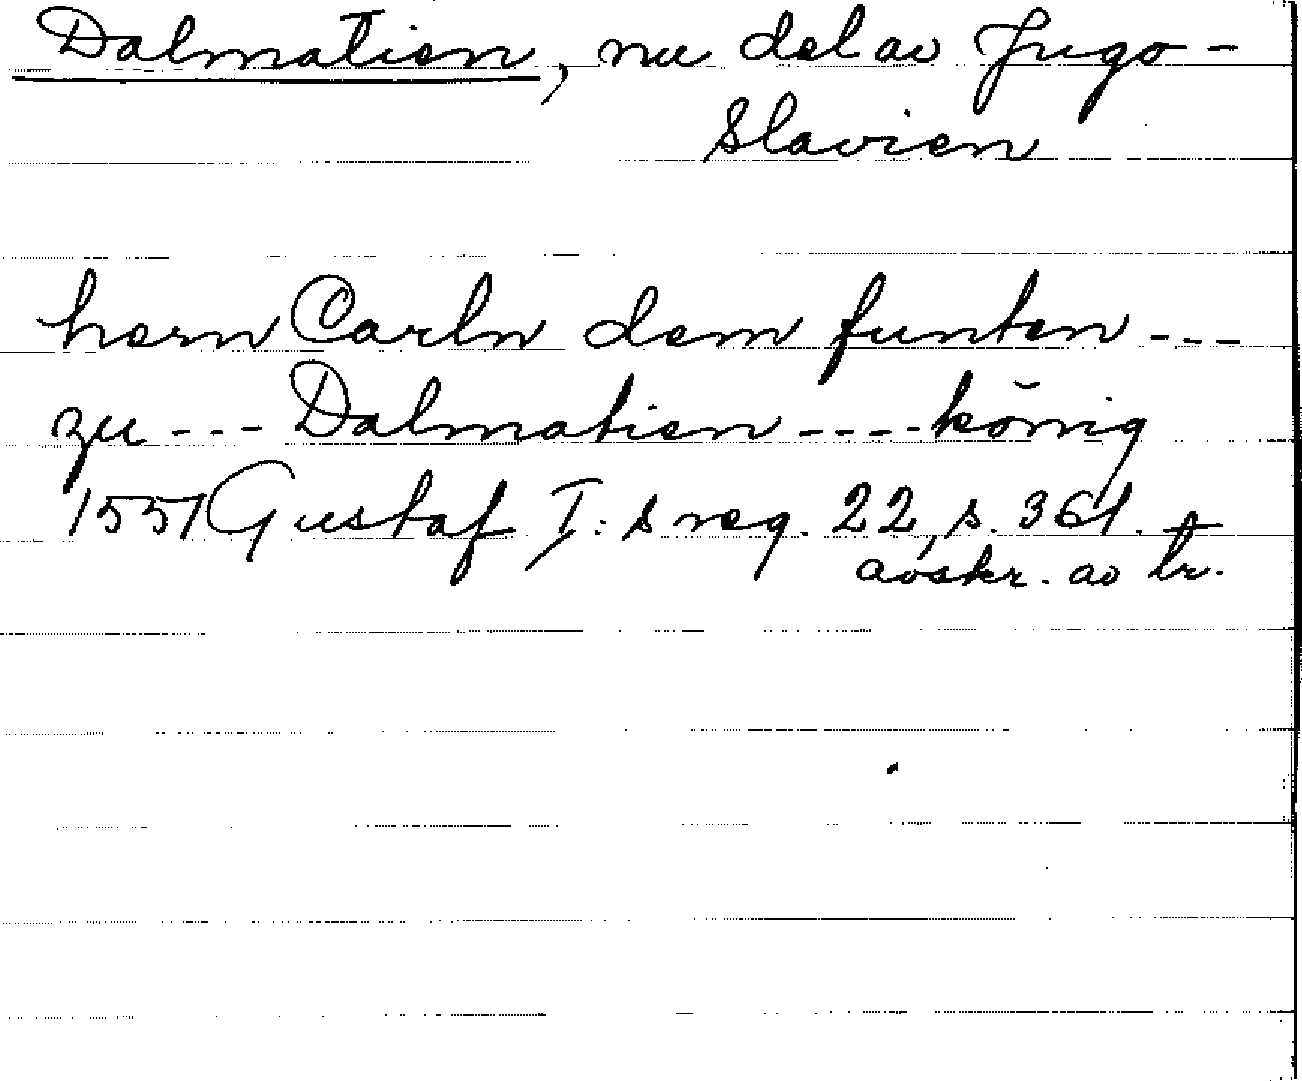 Dalmatien, nu del av Jugo-
slavien
hern Carln dem funten ---
zu --- Dalmatien ---- könig
1551 Gustaf I:s reg. 22, s. 361. tr
avskr. av tr.